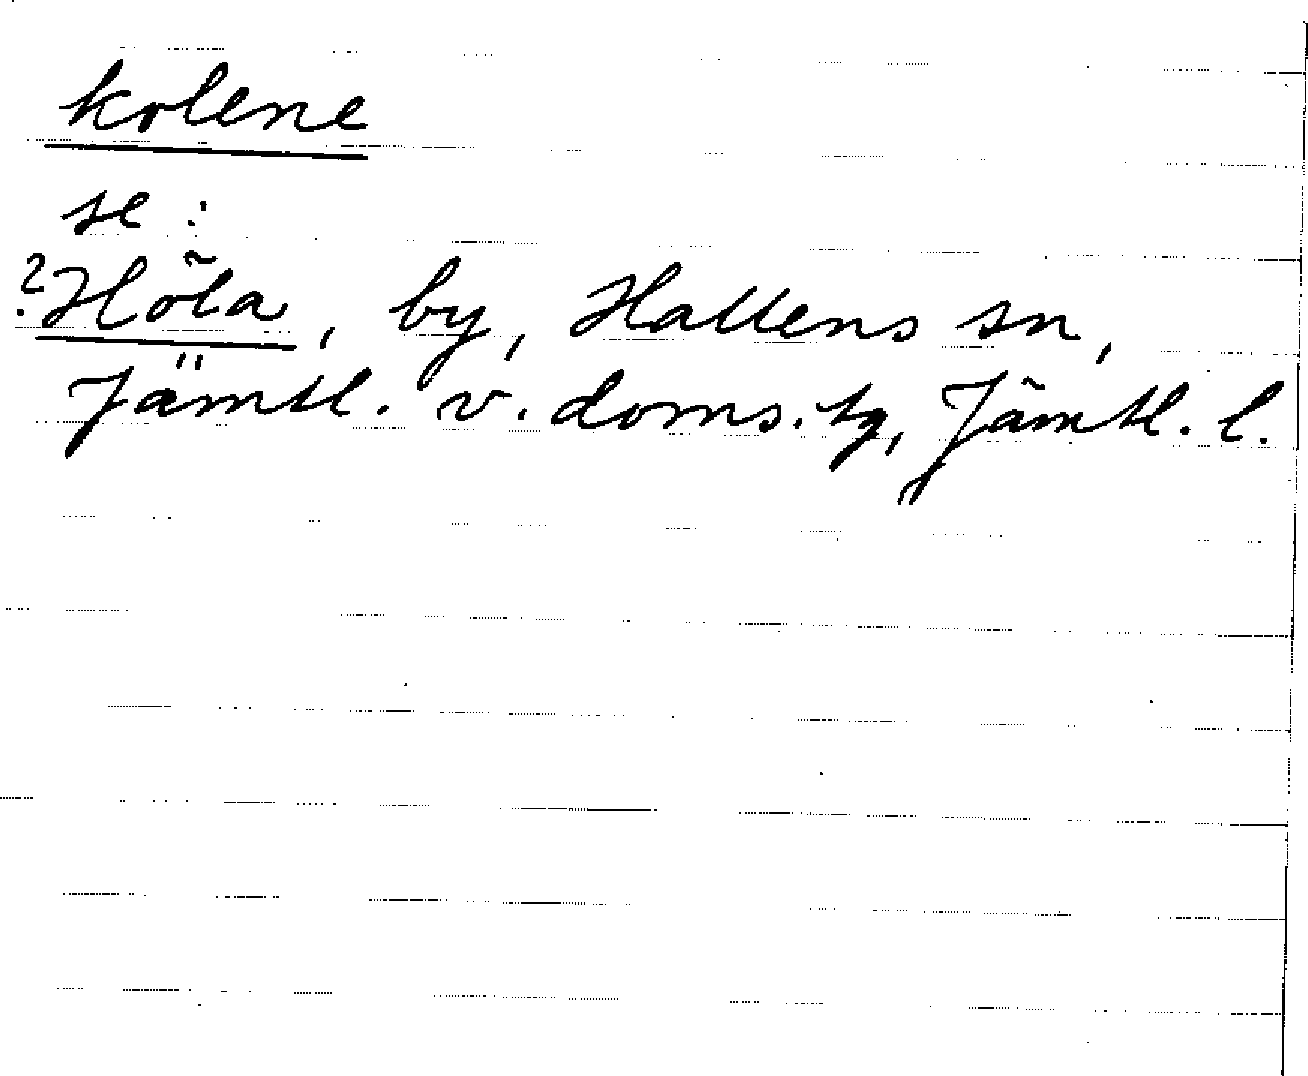 kolene
se :
? Höla, by, Hallens sn,
Jämtl. v. doms. tg, Jämtl. l.